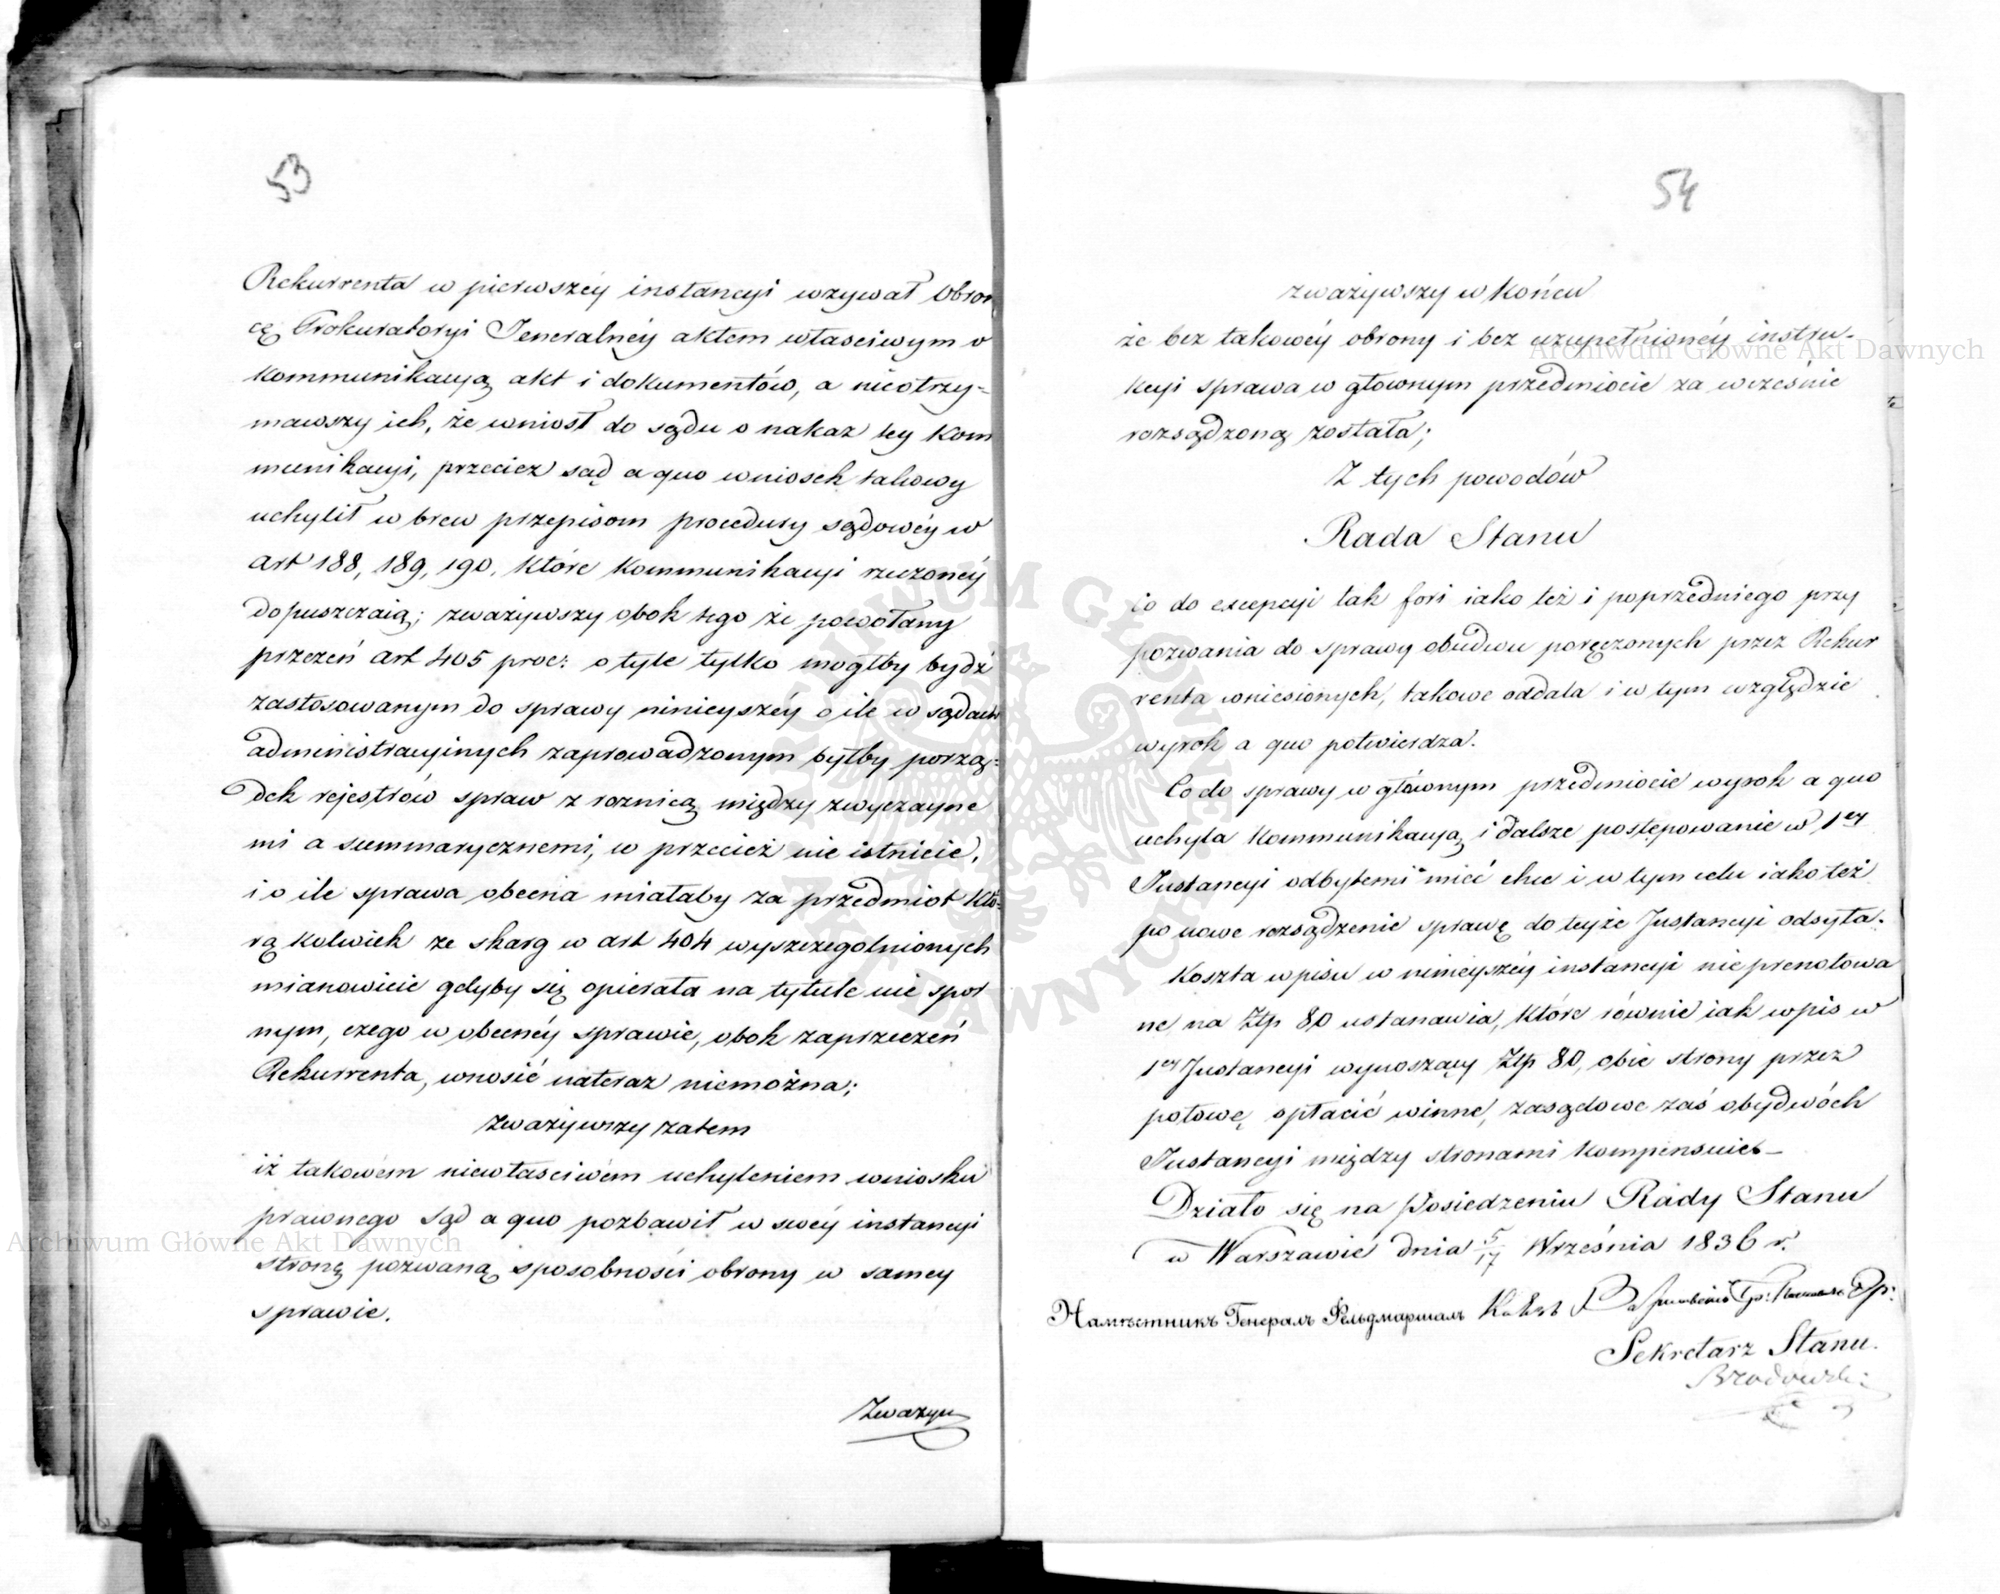 53
Rekurrenta w pierwszéy instancyi wzywał Obroń
cę Prokuratoryi Jeneralnéy aktem właściwym o
kommunikacyą akt i dokumentów, a nieotrzy-
mawszy ich, że wniosł do sądu o nakaz tey kom
munikacyi, przecież sąd a quo wniosek takowy
uchylił w brew przepisom procedury sądowéy w
art 188, 189, 190. które kommunikacyi rzeczonéy
dopuszczaią; zważywszy obok tego że powołany
przezeń art 405 proc: o tyle tylko mógłby bydź
zastosowanym do sprawy ninieyszéy o ile w sądach
administracyinych zaprowadzonym byłby porzą-
dek rejestrów spraw z roznicą między zwyczayne
mi a summarycznemi, w przecież nie istnieie,
i o ile sprawa obecna miałaby za przedmiot któ-
rą kolwiek ze skarg w art 404 wyszczegolnionych
mianowicie gdyby się opierała na tytule nie spor
nym, czego w obecnéy sprawie, obok zaprzeczeń
Rekurrenta, wnosić nateraz niemożna;
zważywszy zatem
iż takowém niewłaściwém uchyleniem wniosku
prawnego sąd a quo pozbawił w swéy instancyi
stronę pozwaną sposobności obrony w samey
sprawie.
Zważyw
54
zważywszy w końcu
że bez takowéy obrony i bez uzupełnionéy instru-
kcyi sprawa w głównym przedmiocie za wcześnie
rozsądzoną została;
Z tych powodów
Rada Stanu
Co do excepcyi tak fori iako też i poprzedniego przy
pozwania do sprawy obudwu poręczonych przez Rekur
renta wniesionych, takowe oddala i w tym względzie
wyrok a quo potwierdza.
Co do sprawy w głównym przedmiocie wyrok a quo
uchyla kommunikacyą i dalsze postępowanie w 1ey
Instancyi odbytemi mieć chce i w tym celu iako też
po nowe rozsądzenie sprawę do teyże Instancyi odsyła.
Koszta wpisu w ninieyszéy instancyi nieprenotowa
ne na Złp 80 ustanawia, które równie iak wpis w
1ey Instancyi wynoszący Złp 80, obie strony przez
połowę opłacić winne, zasądowe zaś obydwóch
Instancyi między stronami kompensuie
Działo się na Posiedzeniu Rady Stanu
w Warszawie dnia 5/17 Września 1836 r.
Намѣстникъ Генералъ Фельдмаршалъ
Sekretarz Stanu.
Archiwum Główne Akt Dawnych
Archiwum Główne Akt Dawnych
ARCHIWUM GŁÓWNE AKT DAWNYCH